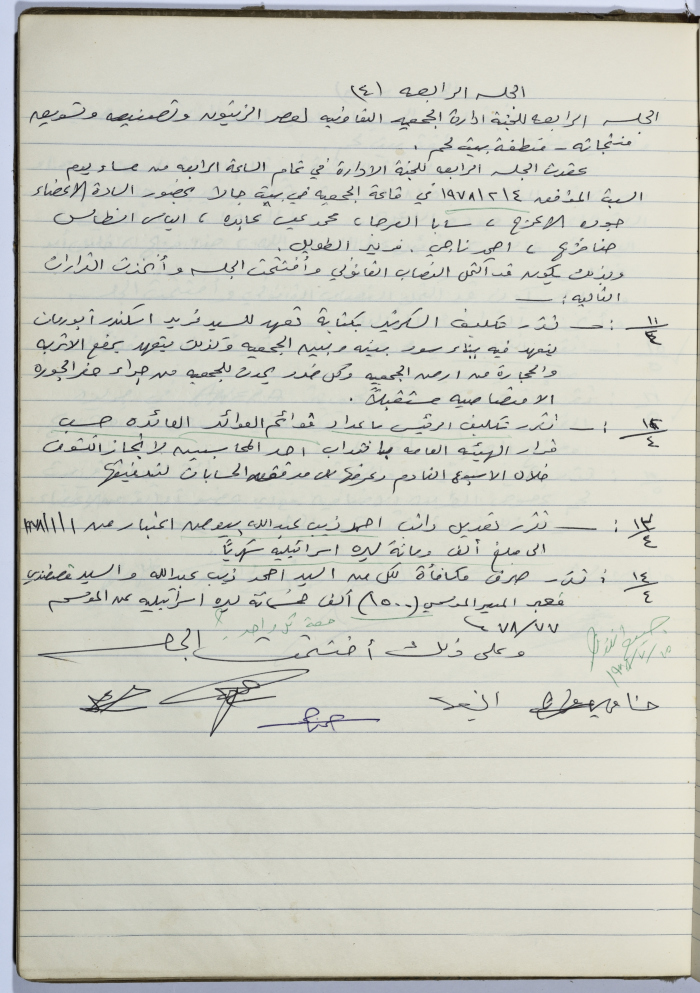 الجلسه الرابعه (٤)
الجلسه الرابعه للجنة ادارة الجمعيه التعاونيه لعصر الزيتون وتصنيعه وتسويق
منتجاته - منطقة بيت لحم .
عقدت الجلسه الرابعه للجنة الادارة في تمام الساعة الرابعه من مساء يوم
السبت الموافق ١٩٧٨/٢/٤ في قاعة الجمعيه في بيت جالا بحضور السادة الاعضاء
جوده الاعرج ، سابا العرجا ، محمد عابده ، الياس
حنا ، احمد ناجي . الطويل .
وبذلك يكون قد اكتمل النصاب القانوني وأفتتحت الجلسه وأتخذت القرارات
التاليه : ــ
١١/٤ : ــ تقرر تكليف السكرتير بكتابة تعهد للسيد فريد اسكندر
يتعهد فيه ببناء سور بينه وبين الجمعيه وكذلك يتعهد برفع الاتربه
والحجارة من ارض الجمعيه وكل ضرر يحدث للجمعيه من جراء حفر الجوره
الامتصاصيه مستقبلاً .
١٢/٤ : ــ تقرر تكليف الرئيس باعداد قوائم العوائد العائده حسب
قرار الهيئه العامه بانتداب احد المحاسبين لانجاز الكشوف
خلال الاسبوع القادم وعرضها على مدقق الحسابات لتدقيقها
١٣/٤ : ــ تقرر تعديل راتب احمد ذيب عبدالله اعتبار من ١٩٧٨/١/١
الى مبلغ ألف ومائة ليره اسرائيليه شهرياً
١٤/٤ : تقرر صرف مكافأة لكل من السيد احمد ذيب عبدالله والسيد قسطندي
قعبر (١٥٠٠) ألف خمسمائة ليره اسرائيليه عن الموسم
٧٨/٧٧ حصة كل واحد .
وعلى ذلك أختتمت الجلسه